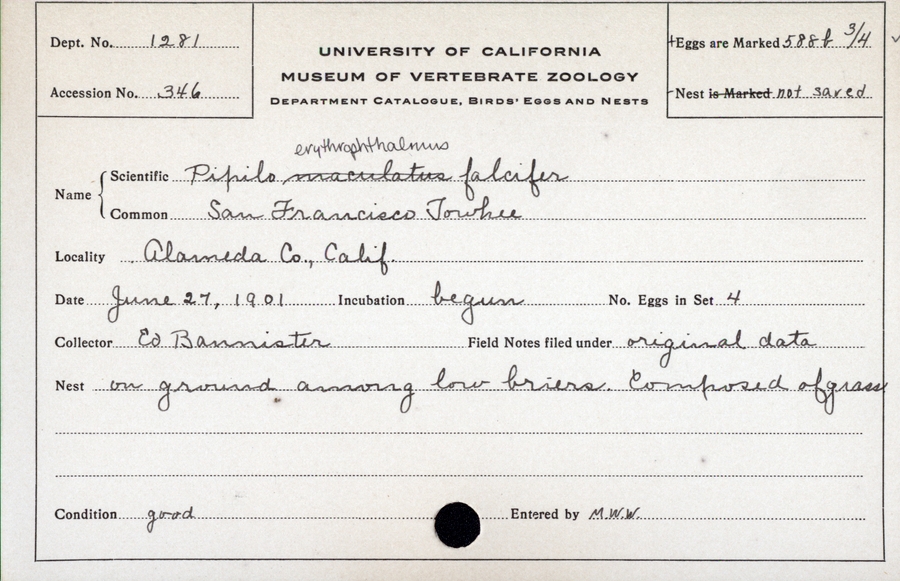 Dept. No. 1281
Accession No. 346
UNIVERSITY OF CALIFORNIA
MUSEUM OF VERTEBRATE ZOOLOGY
DEPARTMENT CATALOGUE, BIRDS' EGGS AND NESTS
Eggs are Marked 588b 3/4
Nest is Marked not saved
erythrophthalmus
Name
Scientific Pipilo maculatus falcifer
Common San Francisco Towhee
Locality Alameda Co., Calif.
Date June 27, 1901 Incubation begun No. Eggs in Set 4
Collector Ed Bannister Field Notes filed under original data
Nest on ground among low briers. Composed of grass
Condition good Entered by M.W.W.